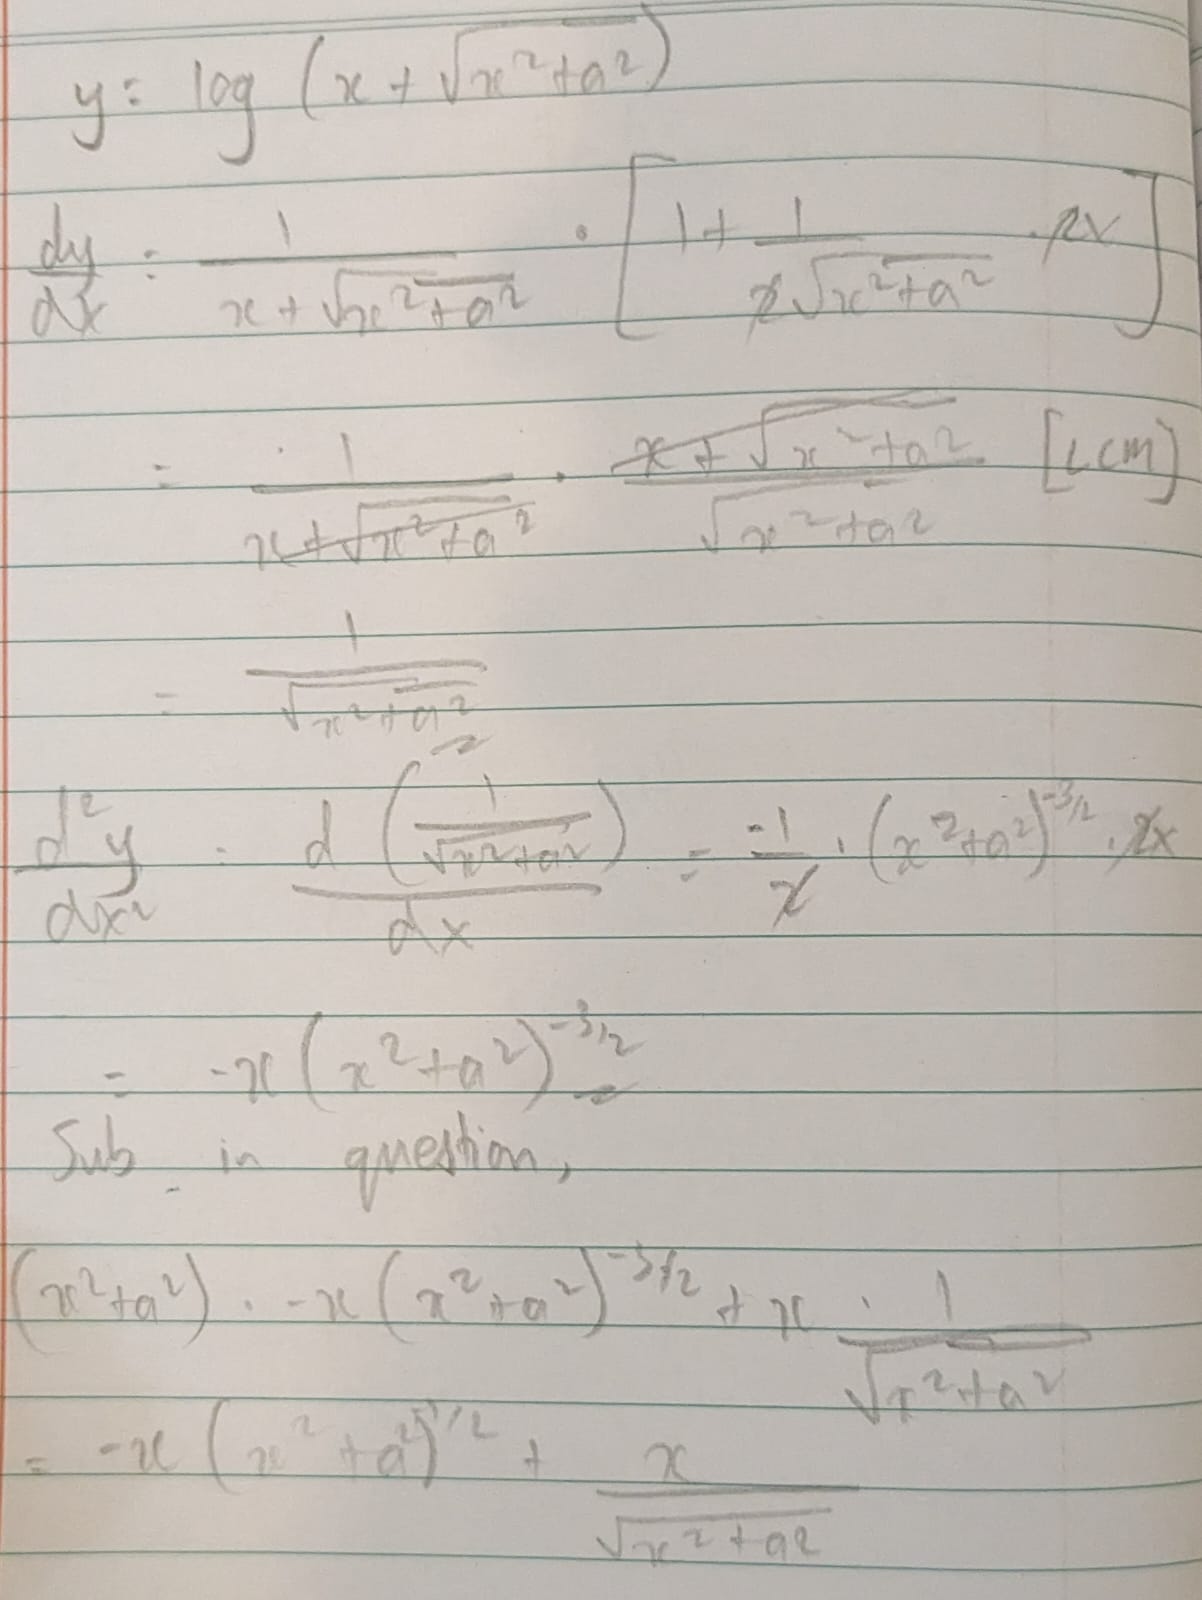 y = log (x + √(x²+a²))
dy/dx = 1/(x + √(x²+a²)) · [1 + 1/(2√(x²+a²)) · 2x]
= 1/(x+√(x²+a²)) · (x+√(x²+a²))/√(x²+a²) [LCM]
= 1/√(x²+a²)
d²y/dx² = d(1/√(x²+a²))/dx = -1/2 · (x²+a²)^(-3/2) · 2x
= -x(x²+a²)^(-3/2)
Sub in question,
(x²+a²) · -x(x²+a²)^(-3/2) + x · 1/√(x²+a²)
= -x(x²+a²)^(-1/2) + x/√(x²+a²)